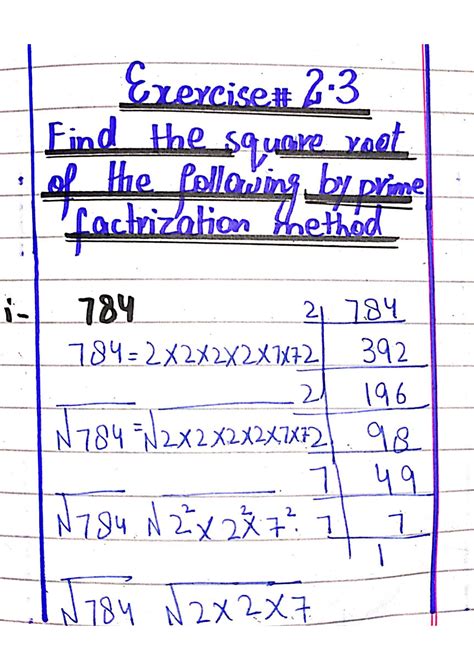 Exercise# 2.3
Find the square root
of the following by prime
factrization method
i- 784
784=2X2X2X2X7X7
√784=√2X2X2X2X7X7
√784 √2²X2²X7²
√784 √2X2X7
2 784
2 392
2 196
2 98
7 49
7 7
1